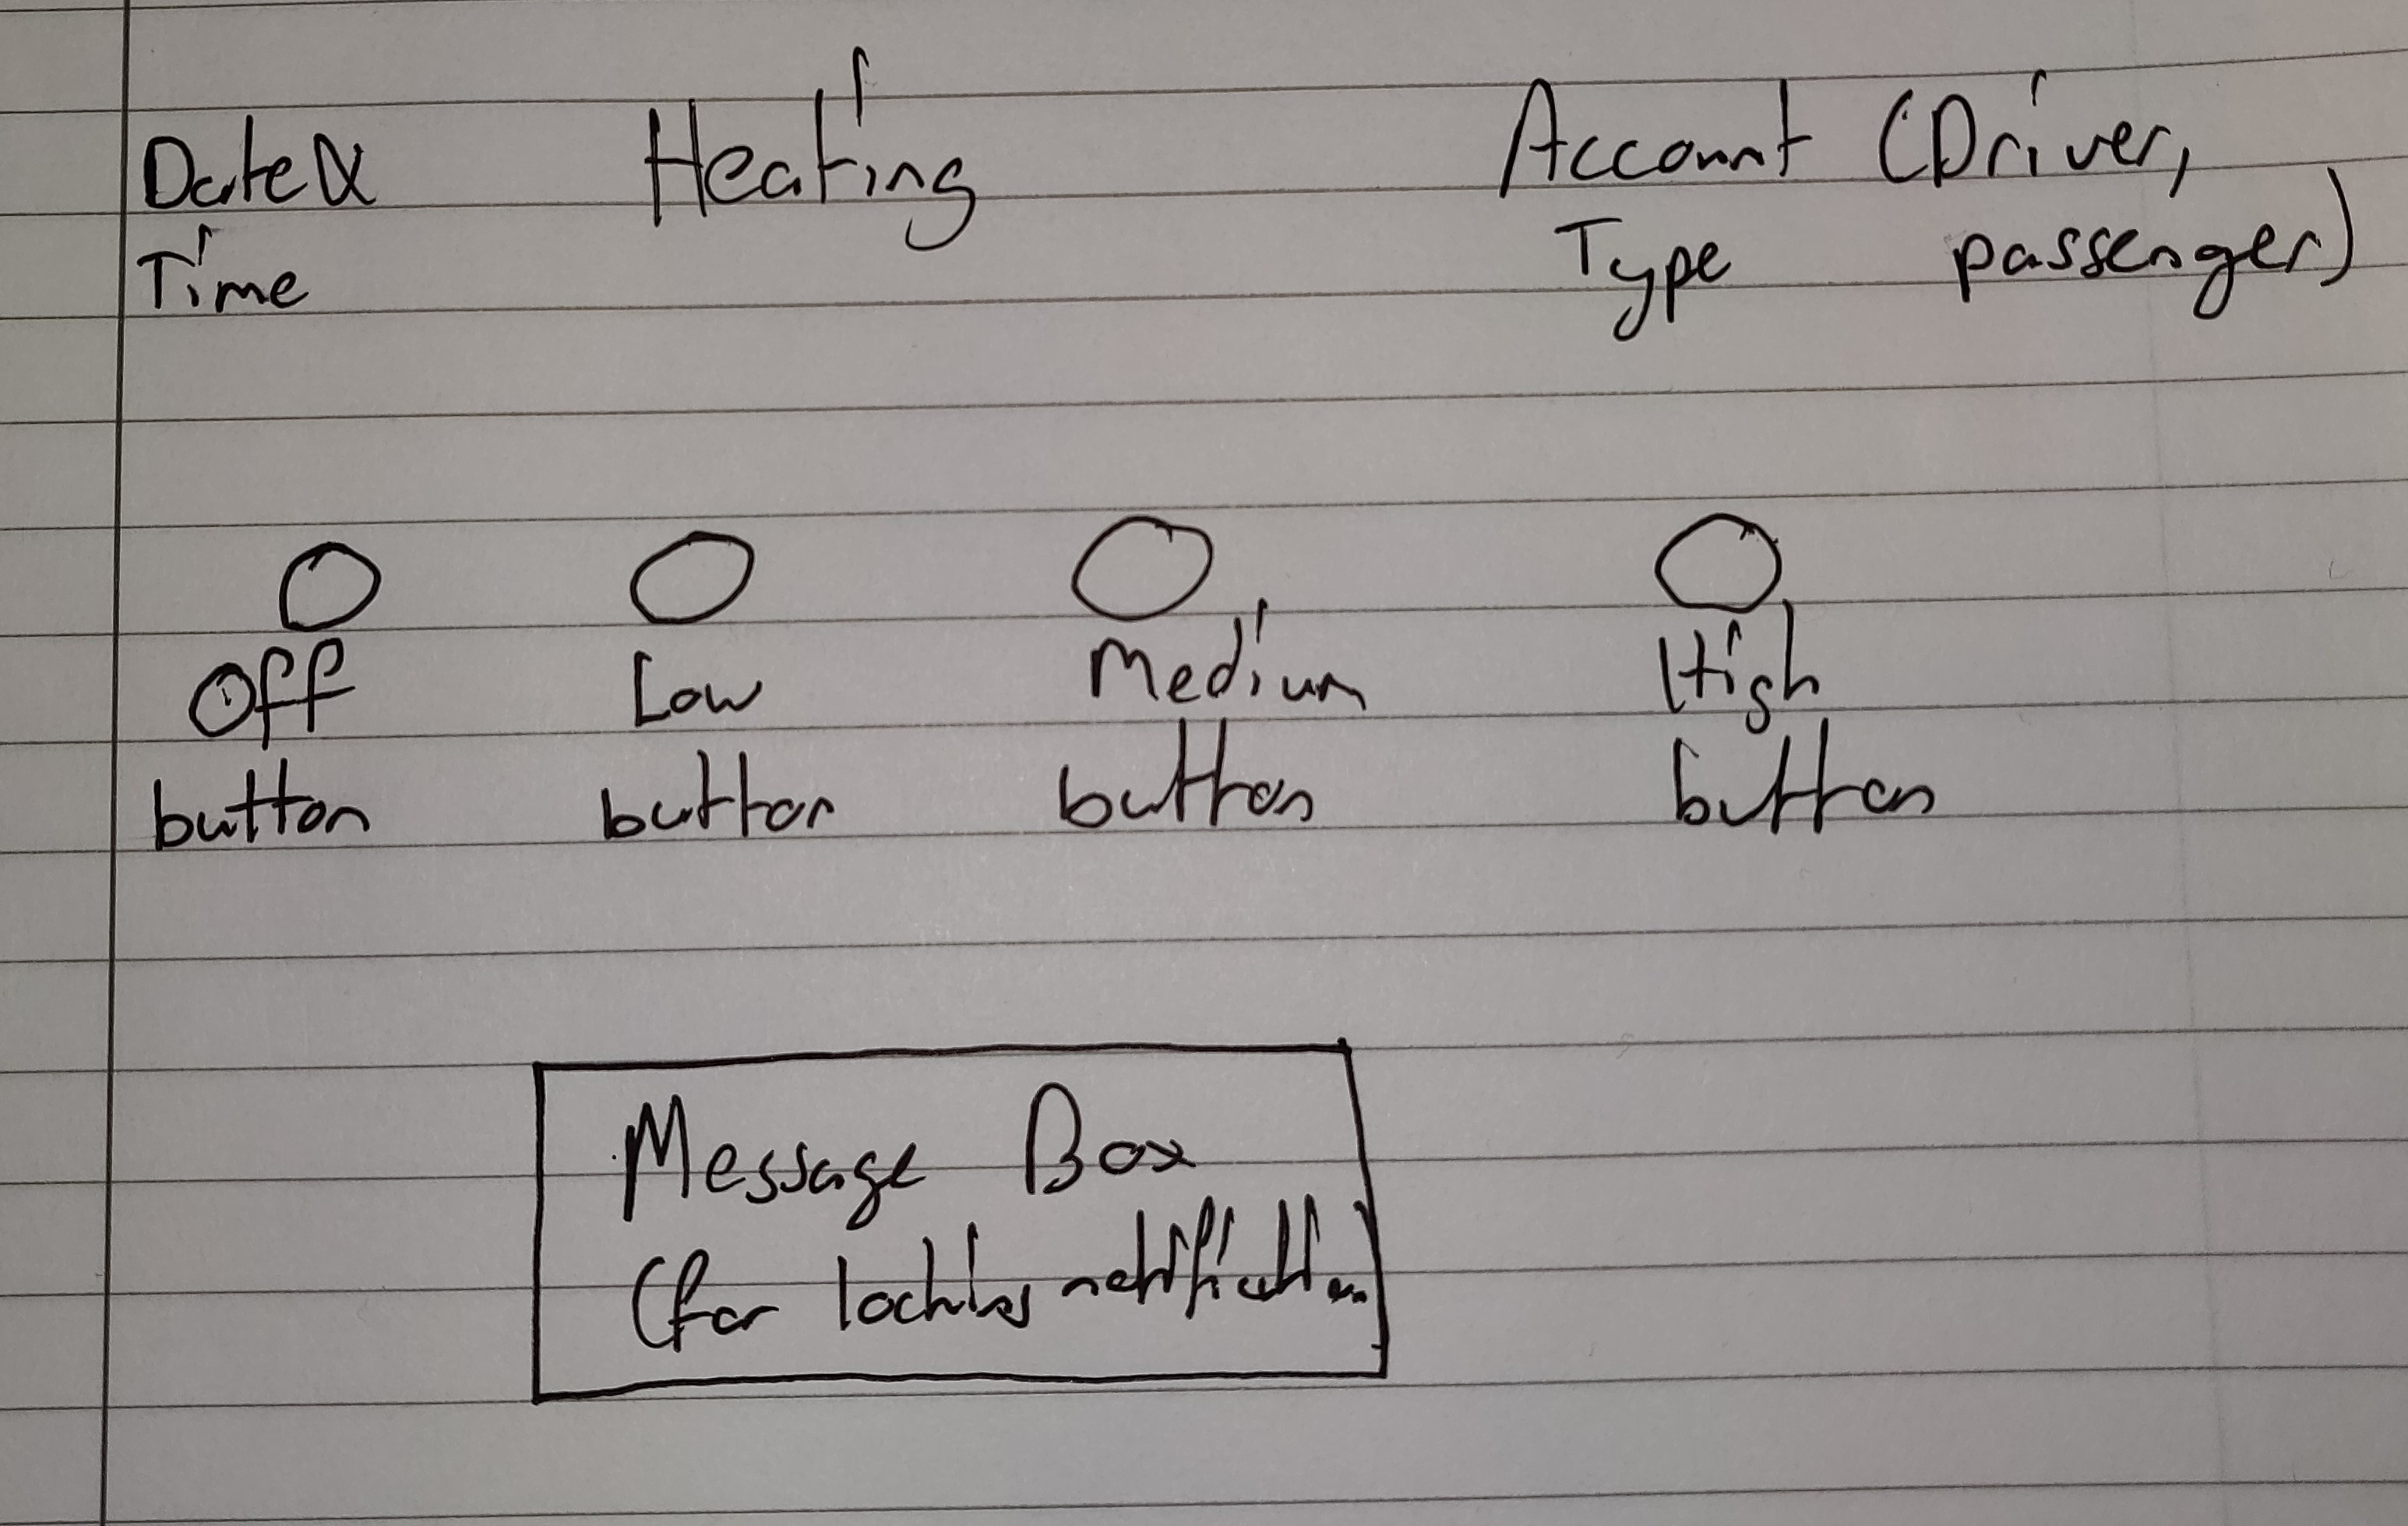 Date &
Time
Heating
Account (Driver,
Type passenger)
Off
button
Low
button
Medium
button
High
button
Message Box
(for locking notification